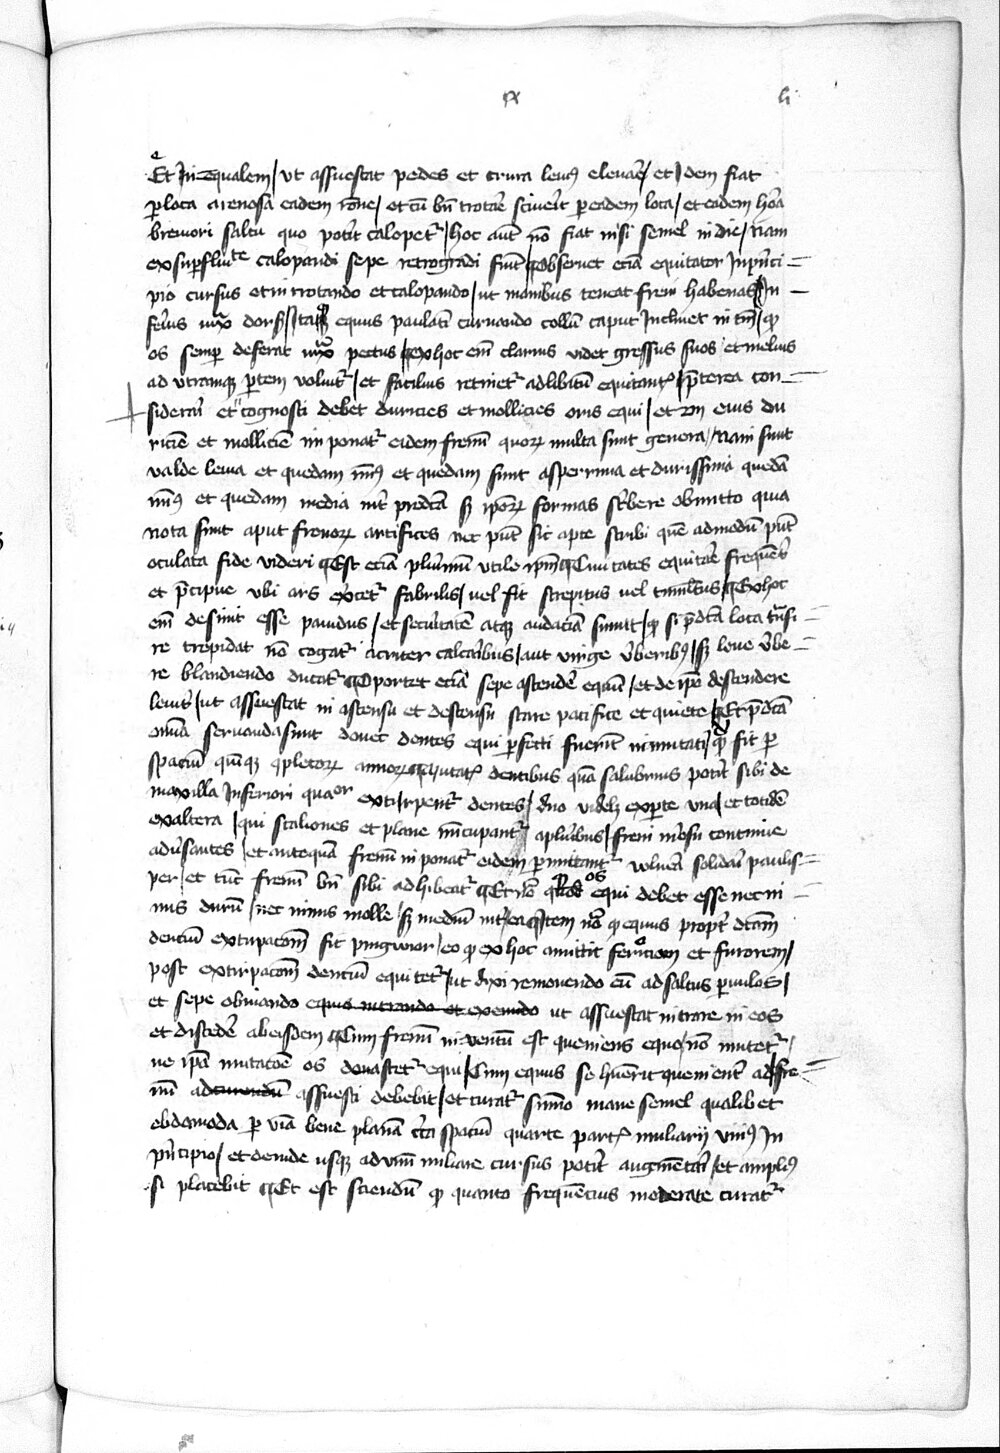 Et Inequalem / ut assuescat pedes et crura levius elevare / et Idem fiat
per loca arenosa eadem ratione / et cum bene trotare sciverit per eadem loca / et eidem hora
breviori saltu quo poterit calopetur / hoc autem non fiat nisi semel in die / nam
ex superfluitate calopandi sepe retrogradi sunt Observet eciam equitator In princi
pio cursus et in trotando et calopando / ut manibus teneat freni habenas In
ferius iuxta dorsum / Itaque equus paulatim curvando collum caput Inclinet in tantum / quod
os semper deferat iuxta pectus Ex hoc enim clarius videt gressus suos et melius
ad utramque partem volvitur / et facilius retinetur ad libitum equitantis / preterea con
siderari et cognosci debet duricies et mollicies oris equi / et eius du
riciem et molliciem imponatur eidem frenum quorum multa sunt genera / Nam sunt
valde levia et quedam minus et quedam sunt asperrima et durissima quedam
minus et quedam media inter predicta sed ipsorum formas scribere obmitto quia
nota sunt aput frenorum artifices nec possunt sic apte scribi quemadmodum possunt
oculata fide videri Est eciam plurimum utile ipsum Civitates equitare frequenter
et precipue ubi ars excercetur fabrilis / vel fit strepitus vel tumultus Ex hoc
enim desinit esse pavidus / et securitatem atque audaciam sumit / quod si predicta loca transi
re trepidat non cogatur acriter calcaribus / aut virge verberibus / sed leve verbe
re blandiendo ducatur Oportet eciam sepe ascendere equum / et de ipso descendere
leniter / ut assuescat in ascensu et descensu stare pacifice et quiete Et predicta
omnia servanda sunt donec dentes equi perfecti fuerint in mutati / quod fit per
spacium quinque completorum annorum mutatis dentibus quam salubrius poterit sibi de
maxilla Inferiori quatuor extirpentur dentes / duo videlicet ex parte una / et totidem
ex altera / qui scaliones et plane nuncupantur a pluribus / freni morsui continue
adversantes / et antequam frenum inponatur eidem permittantur vulnera solidari paulis
per / et tunc frenum bene sibi adhibeatur Et non quod os equi debet esse nec ni
mis durum / nec nimis molle / sed medium inter ea Item nota quod equus propter dictam
dencium extirpacionem fit pinguior / eo quod ex hoc amittit feritatem et furorem /
post extirpacionem dencium equitetur / ut dixi removendo eum ad saltus parvulos /
et sepe obviando equis intrando et exeundo ut assuescat intrare in eos
et discedere ab eisdem Cum frenum inventum est queniens equo / non mutetur /
ne ipsa mutacione os devastetur equi / Cum equus se habuerit quenienter ad fre
num ad currendum assuesci debebit / et curatur summo mane semel qualibet
ebdomoda per viam bene planam circa spacium quarte partis miliarii unius In
principio / et deinde usque ad unum miliare cursus poterit augmentari / et amplius
si placebit Et est sciendum quod quanto frequencius moderate curatur